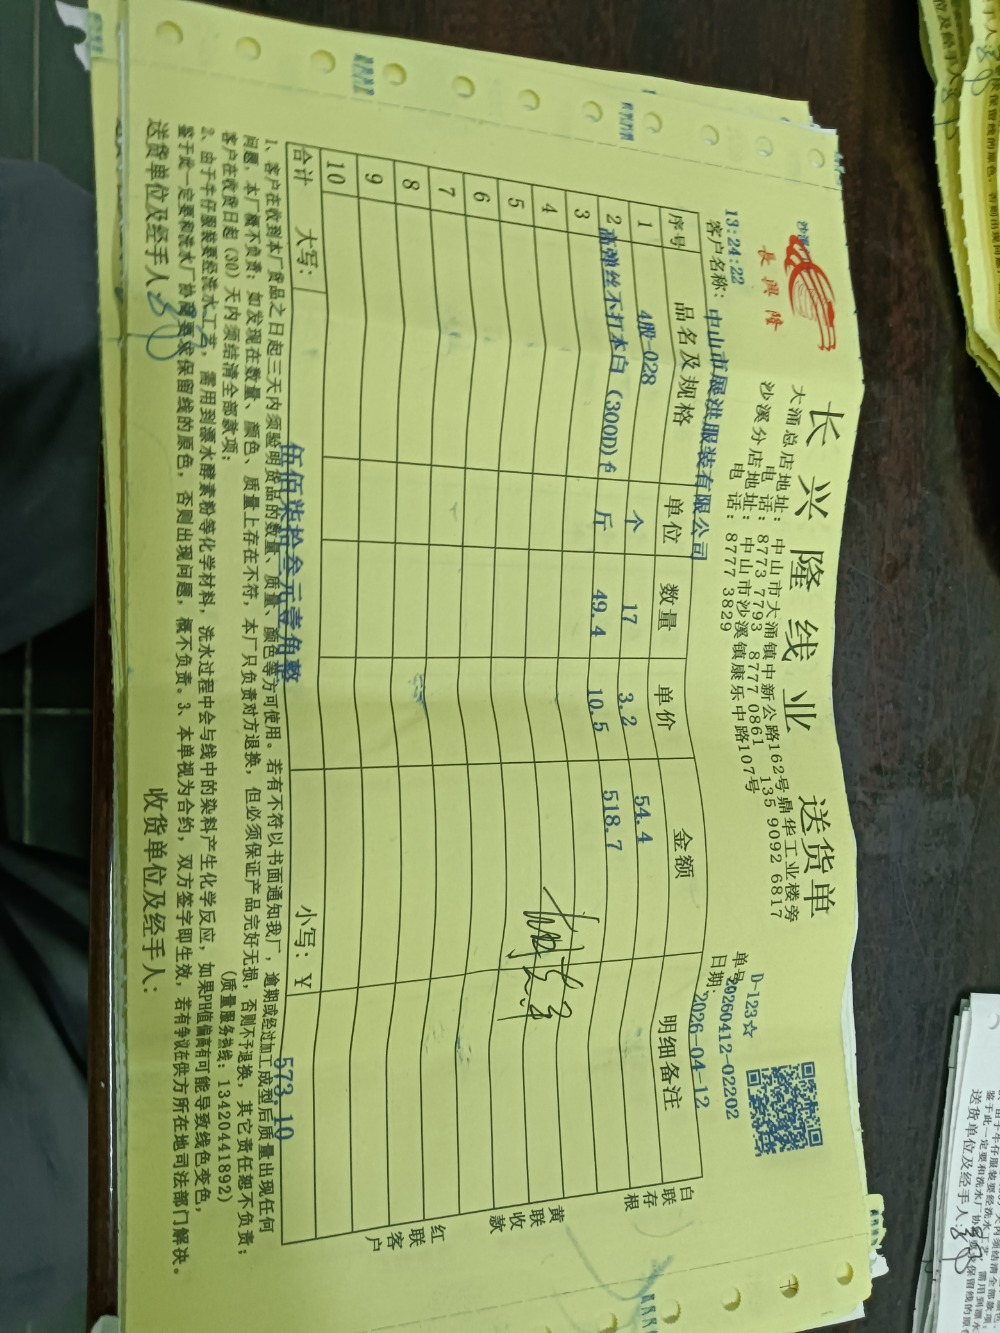 長興隆
沙溪
长兴隆线业 送货单
大涌总店地址：中山市大涌镇中新公路162号鼎华工业楼旁
电话：8773 7793 8777 0861 135 9092 6817
沙溪分店地址：中山市沙溪镇康乐中路107号
电话：8777 3829
D-123☆
单号 20260412-02202
13:24:22
客户名称：中山市展洪服装有限公司
日期：2026-04-12
序号 品名及规格 单位 数量 单价 金额 明细备注
1 4股-028 个 17 3.2 54.4
2 高弹丝不打本白 (300D) 斤 49.4 10.5 518.7
3
4
5
6
7
8
9
10
合计 大写： 伍佰柒拾叁元壹角整 小写：￥ 573.10
白联存根
黄联收款
红联客户
1、客户在收到本厂货品之日起三天内须验明货品的数量、质量、颜色等方可使用。若有不符以书面通知我厂，逾期或经过加工成型后质量出现任何
问题，本厂概不负责；如发现在数量、颜色、质量上存在不符，本厂只负责对方退换，但必须保证产品完好无损，否则不予退换，其它责任恕不负责；
客户在收货日起（30）天内须结清全部款项；
(质量服务热线：13420441892)
2、由于牛仔服装要经洗水工艺，需用到漂水酵素粉等化学材料，洗水过程中会与线中的染料产生化学反应，如果PH值偏高有可能导致线色变色，
鉴于此一定要和洗水厂协商要求保留线的原色，否则出现问题，概不负责。3、本单视为合约，双方签字即生效，若有争议在供方所在地司法部门解决。
送货单位及经手人：
收货单位及经手人：